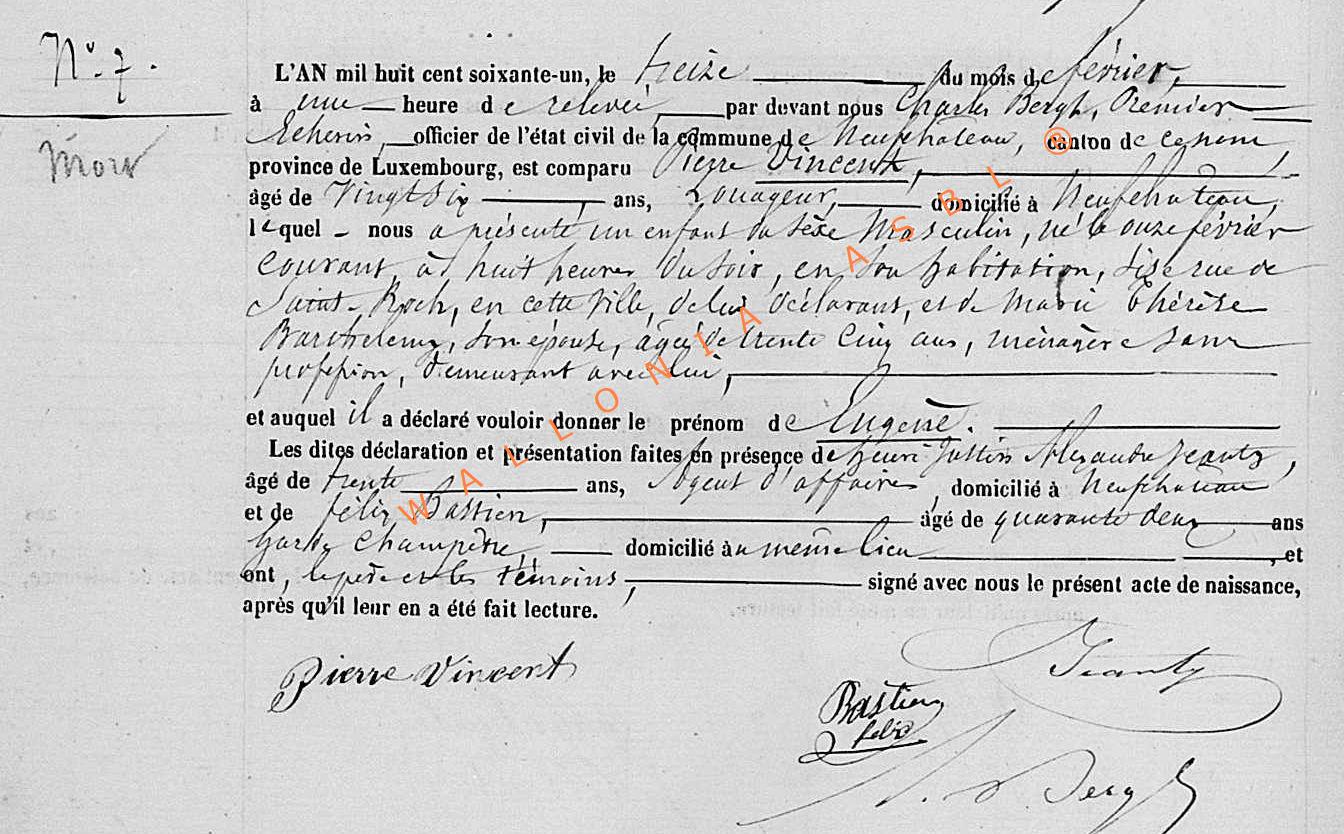 N° 7.
Mort
L'AN mil huit cent soixante-un, le treize du mois de février,
à une heure de relevée, par devant nous Charles Bergh, Premier
Echevin, officier de l'état civil de la commune de Neufchateau, canton de ce nom,
province de Luxembourg, est comparu Pierre Vincent,
âgé de Vingt Six ans, Louageur, domicilié à Neufchateau,
lequel nous a présenté un enfant du sèxe Masculin, né le onze février
courant, à huit heures du soir, en son habitation, sise rue de
Saint-Roch, en cette Ville, de lui déclarant, et de Marie Thérèse
Barthelemy, son épouse, âgée de trente Cinq ans, ménagère sans
profession, demeurant avec lui,
et auquel il a déclaré vouloir donner le prénom de Eugène.
Les dites déclaration et présentation faites en présence de henri Justin Alexandre Jeanty,
âgé de trente ans, Agent d'affaires, domicilié à Neufchateau
et de félix Bastien, âgé de quarante deux ans
Garde Champêtre, domicilié au meme lieu, et
ont, le père et les témoins, signé avec nous le présent acte de naissance,
après qu'il leur en a été fait lecture.
Pierre Vincent
Jeanty
Bastien
felix
Bergh
WALLONIA ASBL ®